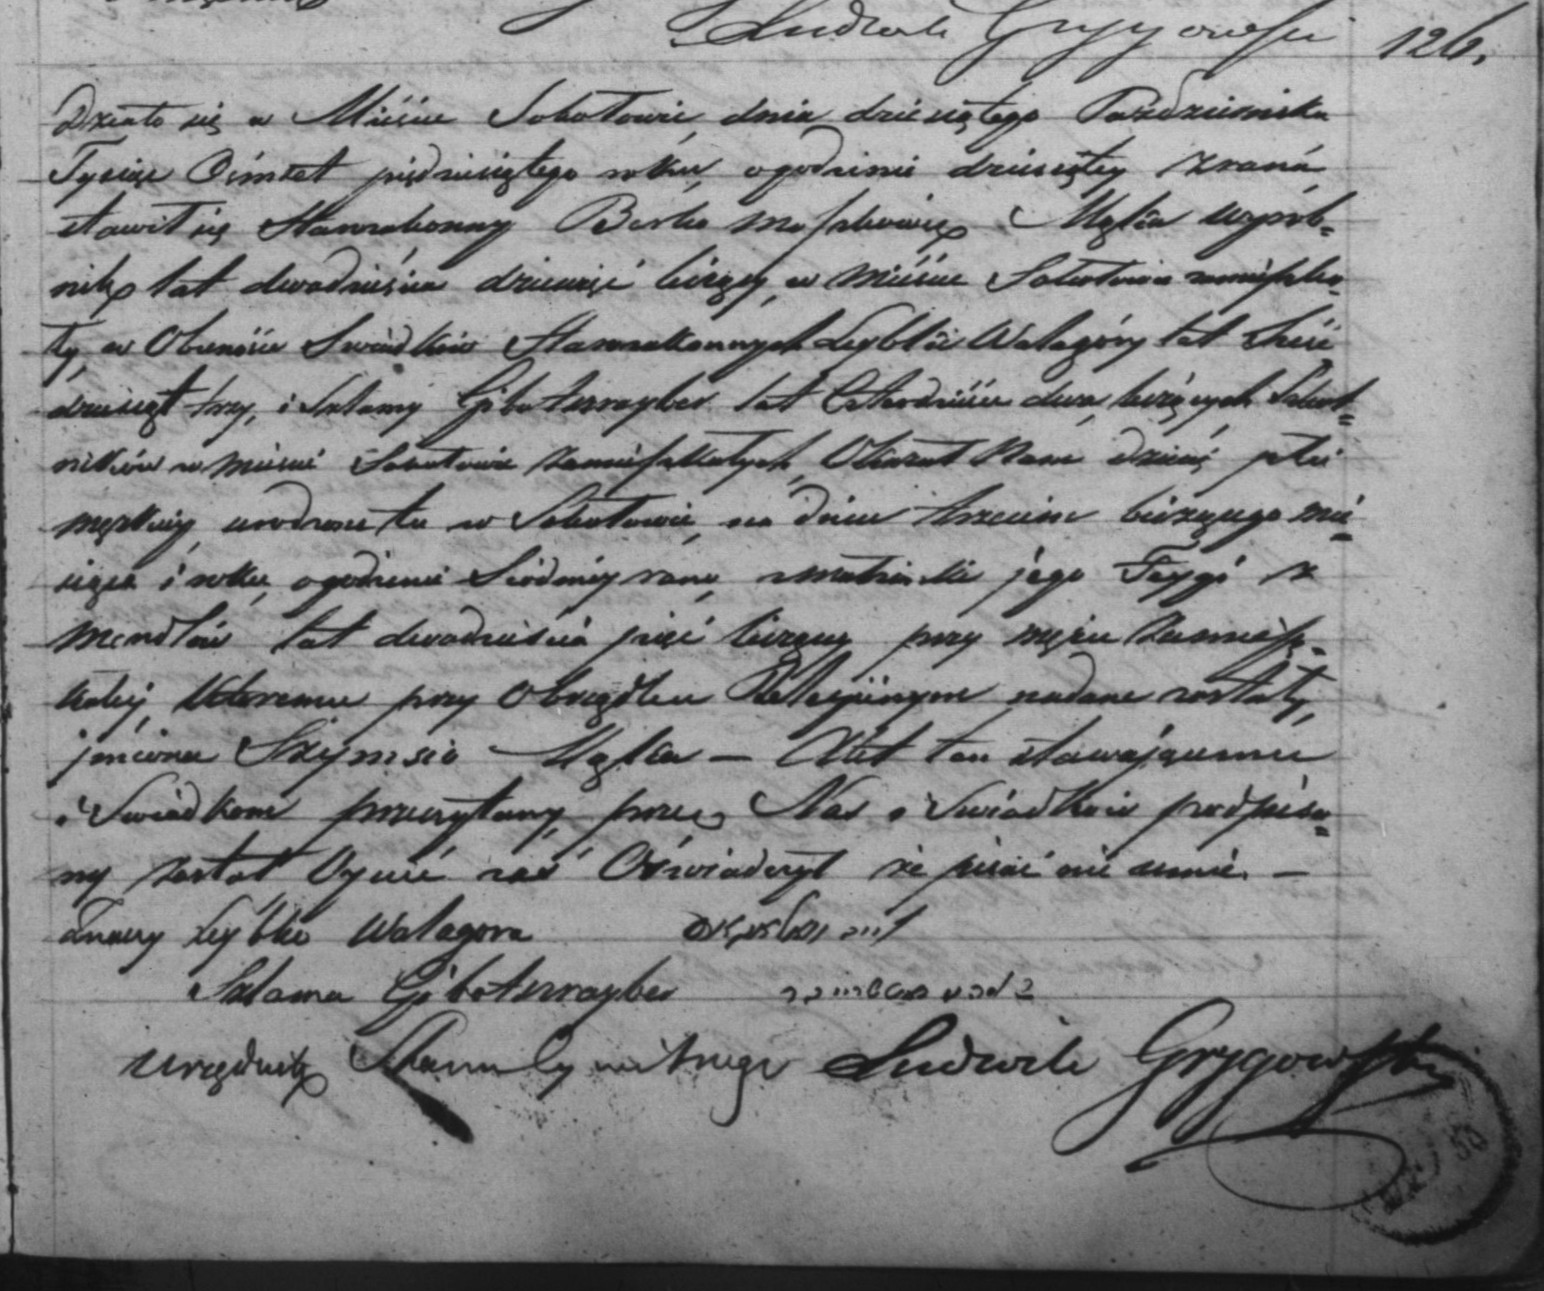 Ludwik Grygowski 126.
Działo się w Mieście Sobotowie dnia dziesiątego Października
Tysiąc Ośmset piędziesiątego roku, o godzinie dziesiątey zrana
stawił się Starozakonny Berko Moszkowicz Męka wyrob-
nik lat dwadzieścia dziewięć liczący, w mieście Sobotowie zamieszka-
ły, w Obecności Swiadków Starozakonnych Leybki Walagóry lat sześć
dziesiąt trzy, i Szlamy Gibetszrayber lat Czterdzieście dwa, liczących Szkol-
ników w mieście Sobotowie zamieszkałych, Okazał Nam dziecię płci
męzkiey urodzone tu w Sobotowie na dniu trzecim bieżącego mie-
siąca i roku, o godzinie Siódméy rano z małżonki jego Faygi z
Mendlów lat dwadzieścia pięć liczący przy mężu Zamiesz-
kałéj, któremu przy obrządku Religijnym nadane zostały
imiona Szymsio Męka — Akt ten stawającemu
i Swiadkom przeczytany, przez Nas i Swiadków podpisa-
ny został Oyciec zaś Oświadczył że pisać nie umie. —
Znaczy Leybko Walagora
Szlama Gibetszrayber
Urzędnik Stanu Cywilnego Ludwik Grygowski